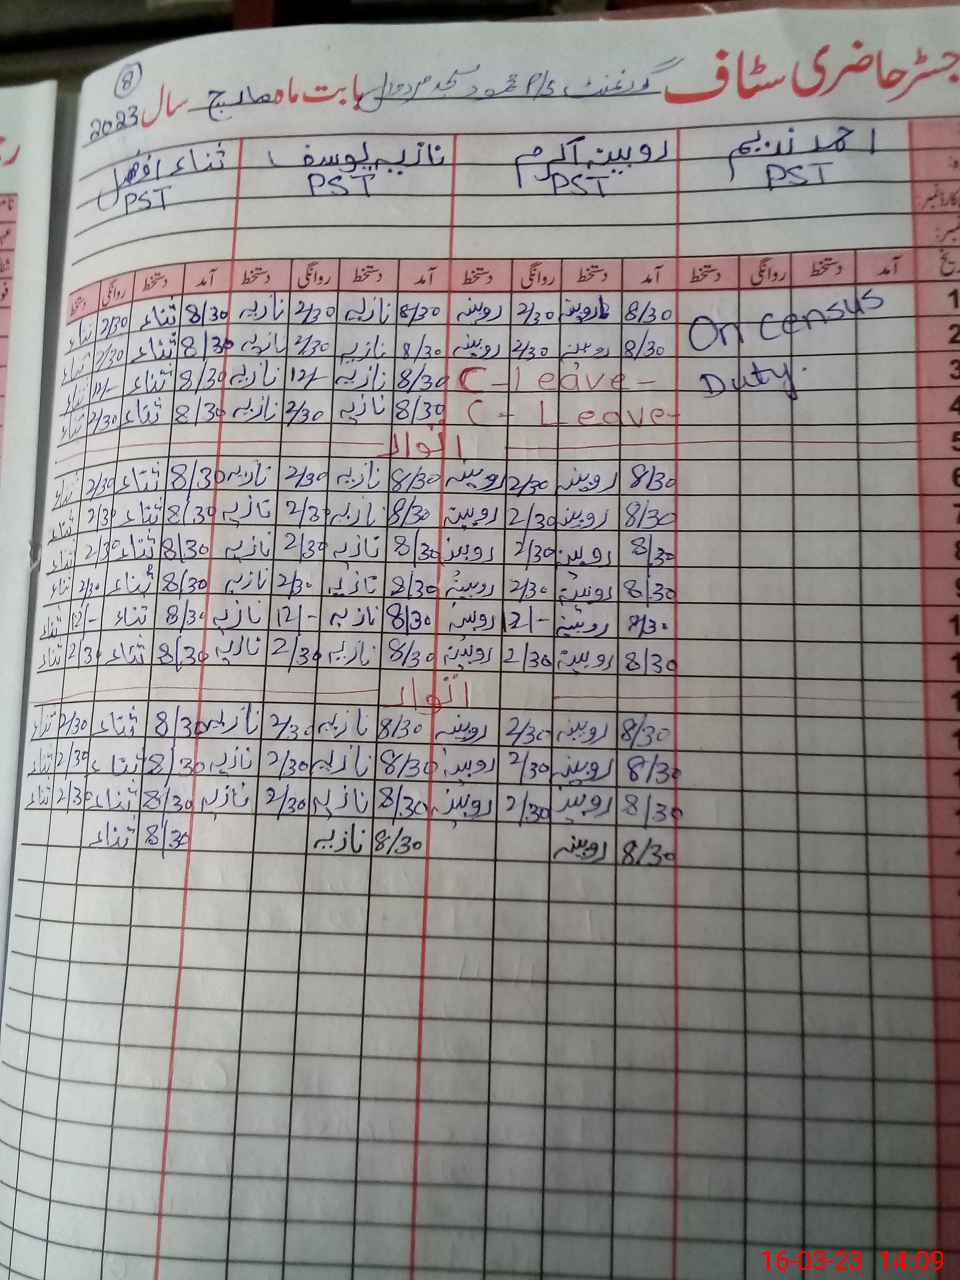 جسٹر حاضری سٹاف گورنمنٹ P/S محمود مسجد بابت ماہ مارچ سال 2023
8
احمد ندیم روبینہ اکرم نازیہ یوسف ثناء افضل
PST PST PST PST
آمد دستخط روانگی دستخط آمد دستخط روانگی دستخط آمد دستخط روانگی دستخط آمد دستخط روانگی دستخط
1 On census 8/30 روبینہ 2/30 روبینہ 8/30 نازیہ 2/30 نازیہ 8/30 ثناء 2/30 ثناء
2 8/30 روبینہ 2/30 روبینہ 8/30 نازیہ 2/30 نازیہ 8/30 ثناء 2/30 ثناء
3 Duty. C-Leave- 8/30 نازیہ 12/- نازیہ 8/30 ثناء 12/- ثناء
4 C-Leave- 8/30 نازیہ 2/30 نازیہ 8/30 ثناء 2/30 ثناء
5 اتوار
6 8/30 روبینہ 2/30 روبینہ 8/30 نازیہ 2/30 نازیہ 8/30 ثناء 2/30 ثناء
7 8/30 روبینہ 2/30 روبینہ 8/30 نازیہ 2/30 نازیہ 8/30 ثناء 2/30 ثناء
8 8/30 روبینہ 2/30 روبینہ 8/30 نازیہ 2/30 نازیہ 8/30 ثناء 2/30 ثناء
9 8/30 روبینہ 2/30 روبینہ 8/30 نازیہ 2/30 نازیہ 8/30 ثناء 2/30 ثناء
1 8/30 روبینہ 12/- روبینہ 8/30 نازیہ 12/- نازیہ 8/30 ثناء 12/- ثناء
1 8/30 روبینہ 2/30 روبینہ 8/30 نازیہ 2/30 نازیہ 8/30 ثناء 2/30 ثناء
1 اتوار
1 8/30 روبینہ 2/30 روبینہ 8/30 نازیہ 2/30 نازیہ 8/30 ثناء 2/30 ثناء
1 8/30 روبینہ 2/30 روبینہ 8/30 نازیہ 2/30 نازیہ 8/30 ثناء 2/30 ثناء
8/30 روبینہ 2/30 روبینہ 8/30 نازیہ 2/30 نازیہ 8/30 ثناء 2/30 ثناء
8/30 روبینہ 8/30 نازیہ 8/30 ثناء
16-03-23 14:09